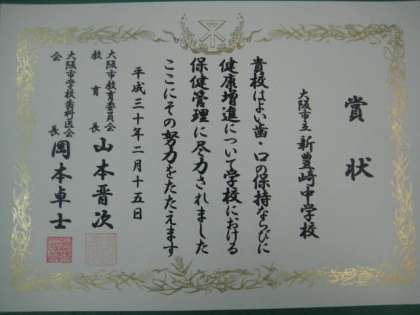 賞状
大阪市立 新豊崎中学校
貴校はよい歯・口の保持ならびに
健康増進について学校における
保健管理に尽力されました
ここにその努力をたたえます
平成三十年二月十五日
大阪市教育委員会
教育長 山本晋次
大阪市学校歯科医会
会長 岡本卓士